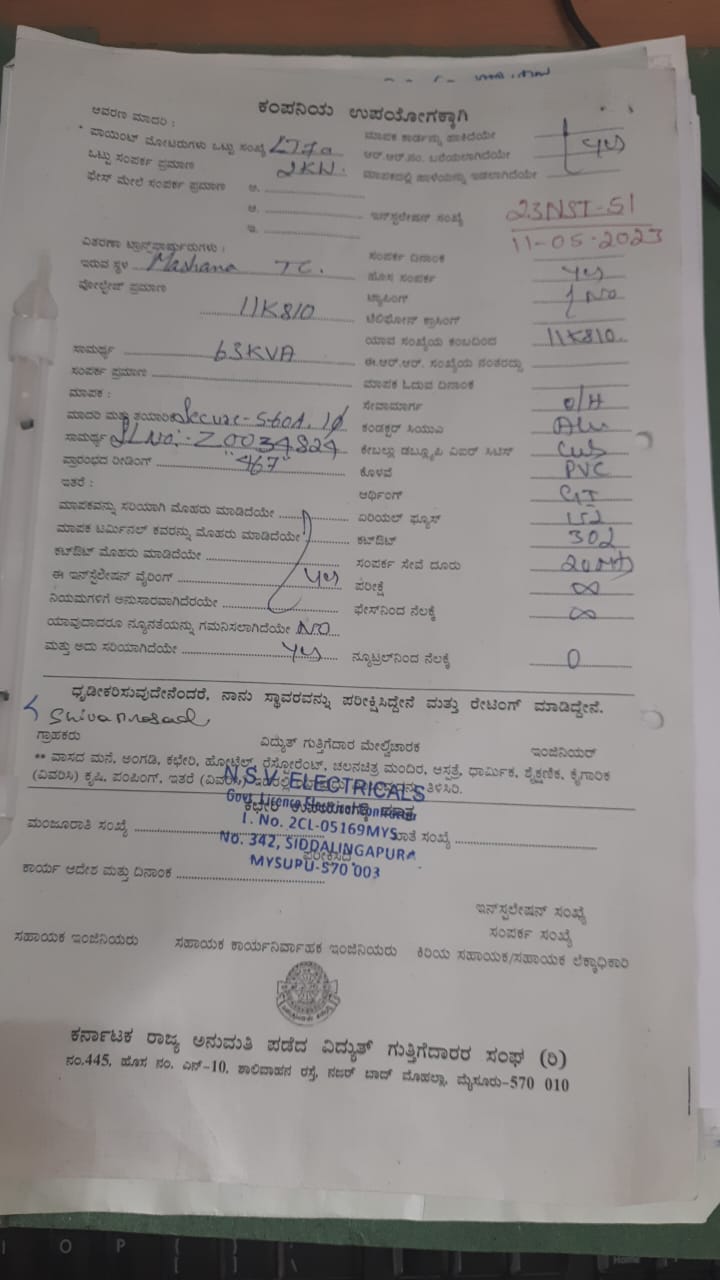 ಕಂಪನಿಯ ಉಪಯೋಗಕ್ಕಾಗಿ
ಆವರಣ ಮಾದರಿ :
ಮಾಪಕ ಕಾರ್ಡನ್ನು ಹಾಕಿದೆಯೇ
ಪಾಯಿಂಟ್ ಮೋಟರುಗಳು ಒಟ್ಟು ಸಂಖ್ಯೆ
ಆರ್.ಆರ್.ನಂ. ಬರೆಯಲಾಗಿದೆಯೇ Yes
ಒಟ್ಟು ಸಂಪರ್ಕ ಪ್ರಮಾಣ 2KW.
ಮಾಪಕದಲ್ಲಿ ಹಾಳೆಯನ್ನು ಇಡಲಾಗಿದೆಯೇ
ಫೇಸ್ ಮೇಲೆ ಸಂಪರ್ಕ ಪ್ರಮಾಣ ಅ.
ಆ. ಇನ್‌ಸ್ಟಲೇಷನ್ ಸಂಖ್ಯೆ 23NST-51
ಇ. 11-05-2023
ವಿತರಣಾ ಟ್ರಾನ್ಸ್‌ಫಾರ್ಮರುಗಳು : ಸಂಪರ್ಕ ದಿನಾಂಕ
ಇರುವ ಸ್ಥಳ Mashana TC. ಹೊಸ ಸಂಪರ್ಕ Yes
ವೋಲ್ಟೇಜ್ ಪ್ರಮಾಣ ಟ್ಯಾಪಿಂಗ್ No
11K810 ಟೆಲಿಫೋನ್ ಕ್ರಾಸಿಂಗ್
ಯಾವ ಸಂಖ್ಯೆಯ ಕಂಬದಿಂದ 11K810.
ಸಾಮರ್ಥ್ಯ 63KVA ಈ.ಆರ್.ಆರ್. ಸಂಖ್ಯೆಯ ನಂತರದ್ದು
ಸಂಪರ್ಕ ಪ್ರಮಾಣ ಮಾಪಕ ಓದುವ ದಿನಾಂಕ
ಮಾಪಕ : ಸೇವಾಮಾರ್ಗ O/H
ಮಾದರಿ ಮತ್ತು ತಯಾರಿಕೆ Secure- ಕಂಡಕ್ಟರ್ ಸಿಯುಎ
ಸಾಮರ್ಥ್ಯ SL No:- Z0034824 ಕೇಬಲ್ಲು ಡಬ್ಲ್ಯೂಪಿ ವಿಐರ್ ಸಿಟಿಸ್
ಪ್ರಾರಂಭದ ರೀಡಿಂಗ್ "467" ಕೊಳವೆ PVC
ಇತರೆ : ಆರ್ಥಿಂಗ್ GI
ಮಾಪಕವನ್ನು ಸರಿಯಾಗಿ ಮೊಹರು ಮಾಡಿದೆಯೇ ಏರಿಯಲ್ ಫ್ಯೂಸ್ 152
ಮಾಪಕ ಟರ್ಮಿನಲ್ ಕವರನ್ನು ಮೊಹರು ಮಾಡಿದೆಯೇ ಕಟ್‌ಔಟ್ 302
ಕಟ್‌ಔಟ್ ಮೊಹರು ಮಾಡಿದೆಯೇ ಸಂಪರ್ಕ ಸೇವೆ ದೂರು
ಈ ಇನ್‌ಸ್ಟಲೇಷನ್ ವೈರಿಂಗ್ Yes ಪರೀಕ್ಷೆ ∞
ನಿಯಮಗಳಿಗೆ ಅನುಸಾರವಾಗಿದೆರಯೇ ಫೇಸ್‌ನಿಂದ ನೆಲಕ್ಕೆ ∞
ಯಾವುದಾದರೂ ನ್ಯೂನತೆಯನ್ನು ಗಮನಿಸಲಾಗಿದೆಯೇ NO
ಮತ್ತು ಅದು ಸರಿಯಾಗಿದೆಯೇ Yes ನ್ಯೂಟ್ರಲ್‌ನಿಂದ ನೆಲಕ್ಕೆ 0
ಧೃಢೀಕರಿಸುವುದೇನೆಂದರೆ, ನಾನು ಸ್ಥಾವರವನ್ನು ಪರೀಕ್ಷಿಸಿದ್ದೇನೆ ಮತ್ತು ರೇಟಿಂಗ್ ಮಾಡಿದ್ದೇನೆ.
Shiva Prasad
ಗ್ರಾಹಕರು ವಿದ್ಯುತ್ ಗುತ್ತಿಗೆದಾರ ಮೇಲ್ವಿಚಾರಕ ಇಂಜಿನಿಯರ್
** ವಾಸದ ಮನೆ, ಅಂಗಡಿ, ಕಛೇರಿ, ಹೋಟೆಲ್, ರೆಸ್ಟೋರೆಂಟ್, ಚಲನಚಿತ್ರ ಮಂದಿರ, ಆಸ್ಪತ್ರೆ, ಧಾರ್ಮಿಕ, ಶೈಕ್ಷಣಿಕ, ಕೈಗಾರಿಕ
(ವಿವರಿಸಿ) ಕೃಷಿ, ಪಂಪಿಂಗ್, ಇತರೆ (ವಿವರಿಸಿ) ತಿಳಿಸಿರಿ.
N.S.V. ELECTRICALS
Govt. Licence Electrical Contractor
I. No. 2CL-05169MYS
No. 342, SIDDALINGAPURA
MYSUPU-570 003
ಮಂಜೂರಾತಿ ಸಂಖ್ಯೆ ಖಾತೆ ಸಂಖ್ಯೆ
ಪರೀಕ್ಷಿಸಿದೆ
ಕಾರ್ಯ ಆದೇಶ ಮತ್ತು ದಿನಾಂಕ
ಇನ್‌ಸ್ಟಲೇಷನ್ ಸಂಖ್ಯೆ
ಸಂಪರ್ಕ ಸಂಖ್ಯೆ
ಸಹಾಯಕ ಇಂಜಿನಿಯರು ಸಹಾಯಕ ಕಾರ್ಯನಿರ್ವಾಹಕ ಇಂಜಿನಿಯರು ಕಿರಿಯ ಸಹಾಯಕ/ಸಹಾಯಕ ಲೆಕ್ಕಾಧಿಕಾರಿ
ಕರ್ನಾಟಕ ರಾಜ್ಯ ಅನುಮತಿ ಪಡೆದ ವಿದ್ಯುತ್ ಗುತ್ತಿಗೆದಾರರ ಸಂಘ (ರಿ)
ನಂ.445, ಹೊಸ ನಂ. ಎನ್-10, ಶಾಲಿವಾಹನ ರಸ್ತೆ, ನಜರ್ ಬಾದ್ ಮೊಹಲ್ಲಾ, ಮೈಸೂರು-570 010